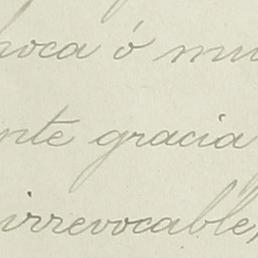 poca ó mu
nte gracia
irrevocable,